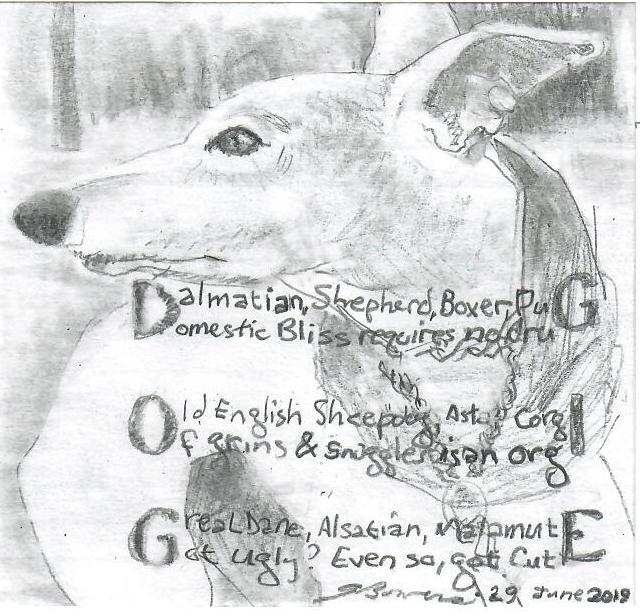 Dalmatian, Shepherd, Boxer, PuG
Domestic Bliss requires no druG
Old English Sheepdog, CorgI
Of grins & snuggles is an orgI
Great Dane, Alsatian, MalamutE
Got ugly? Even so, got CutE
29 June 2019